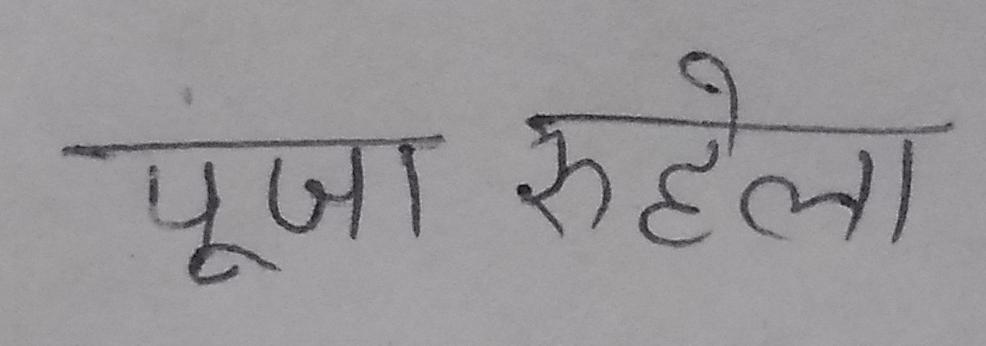 पूजा रुहेला